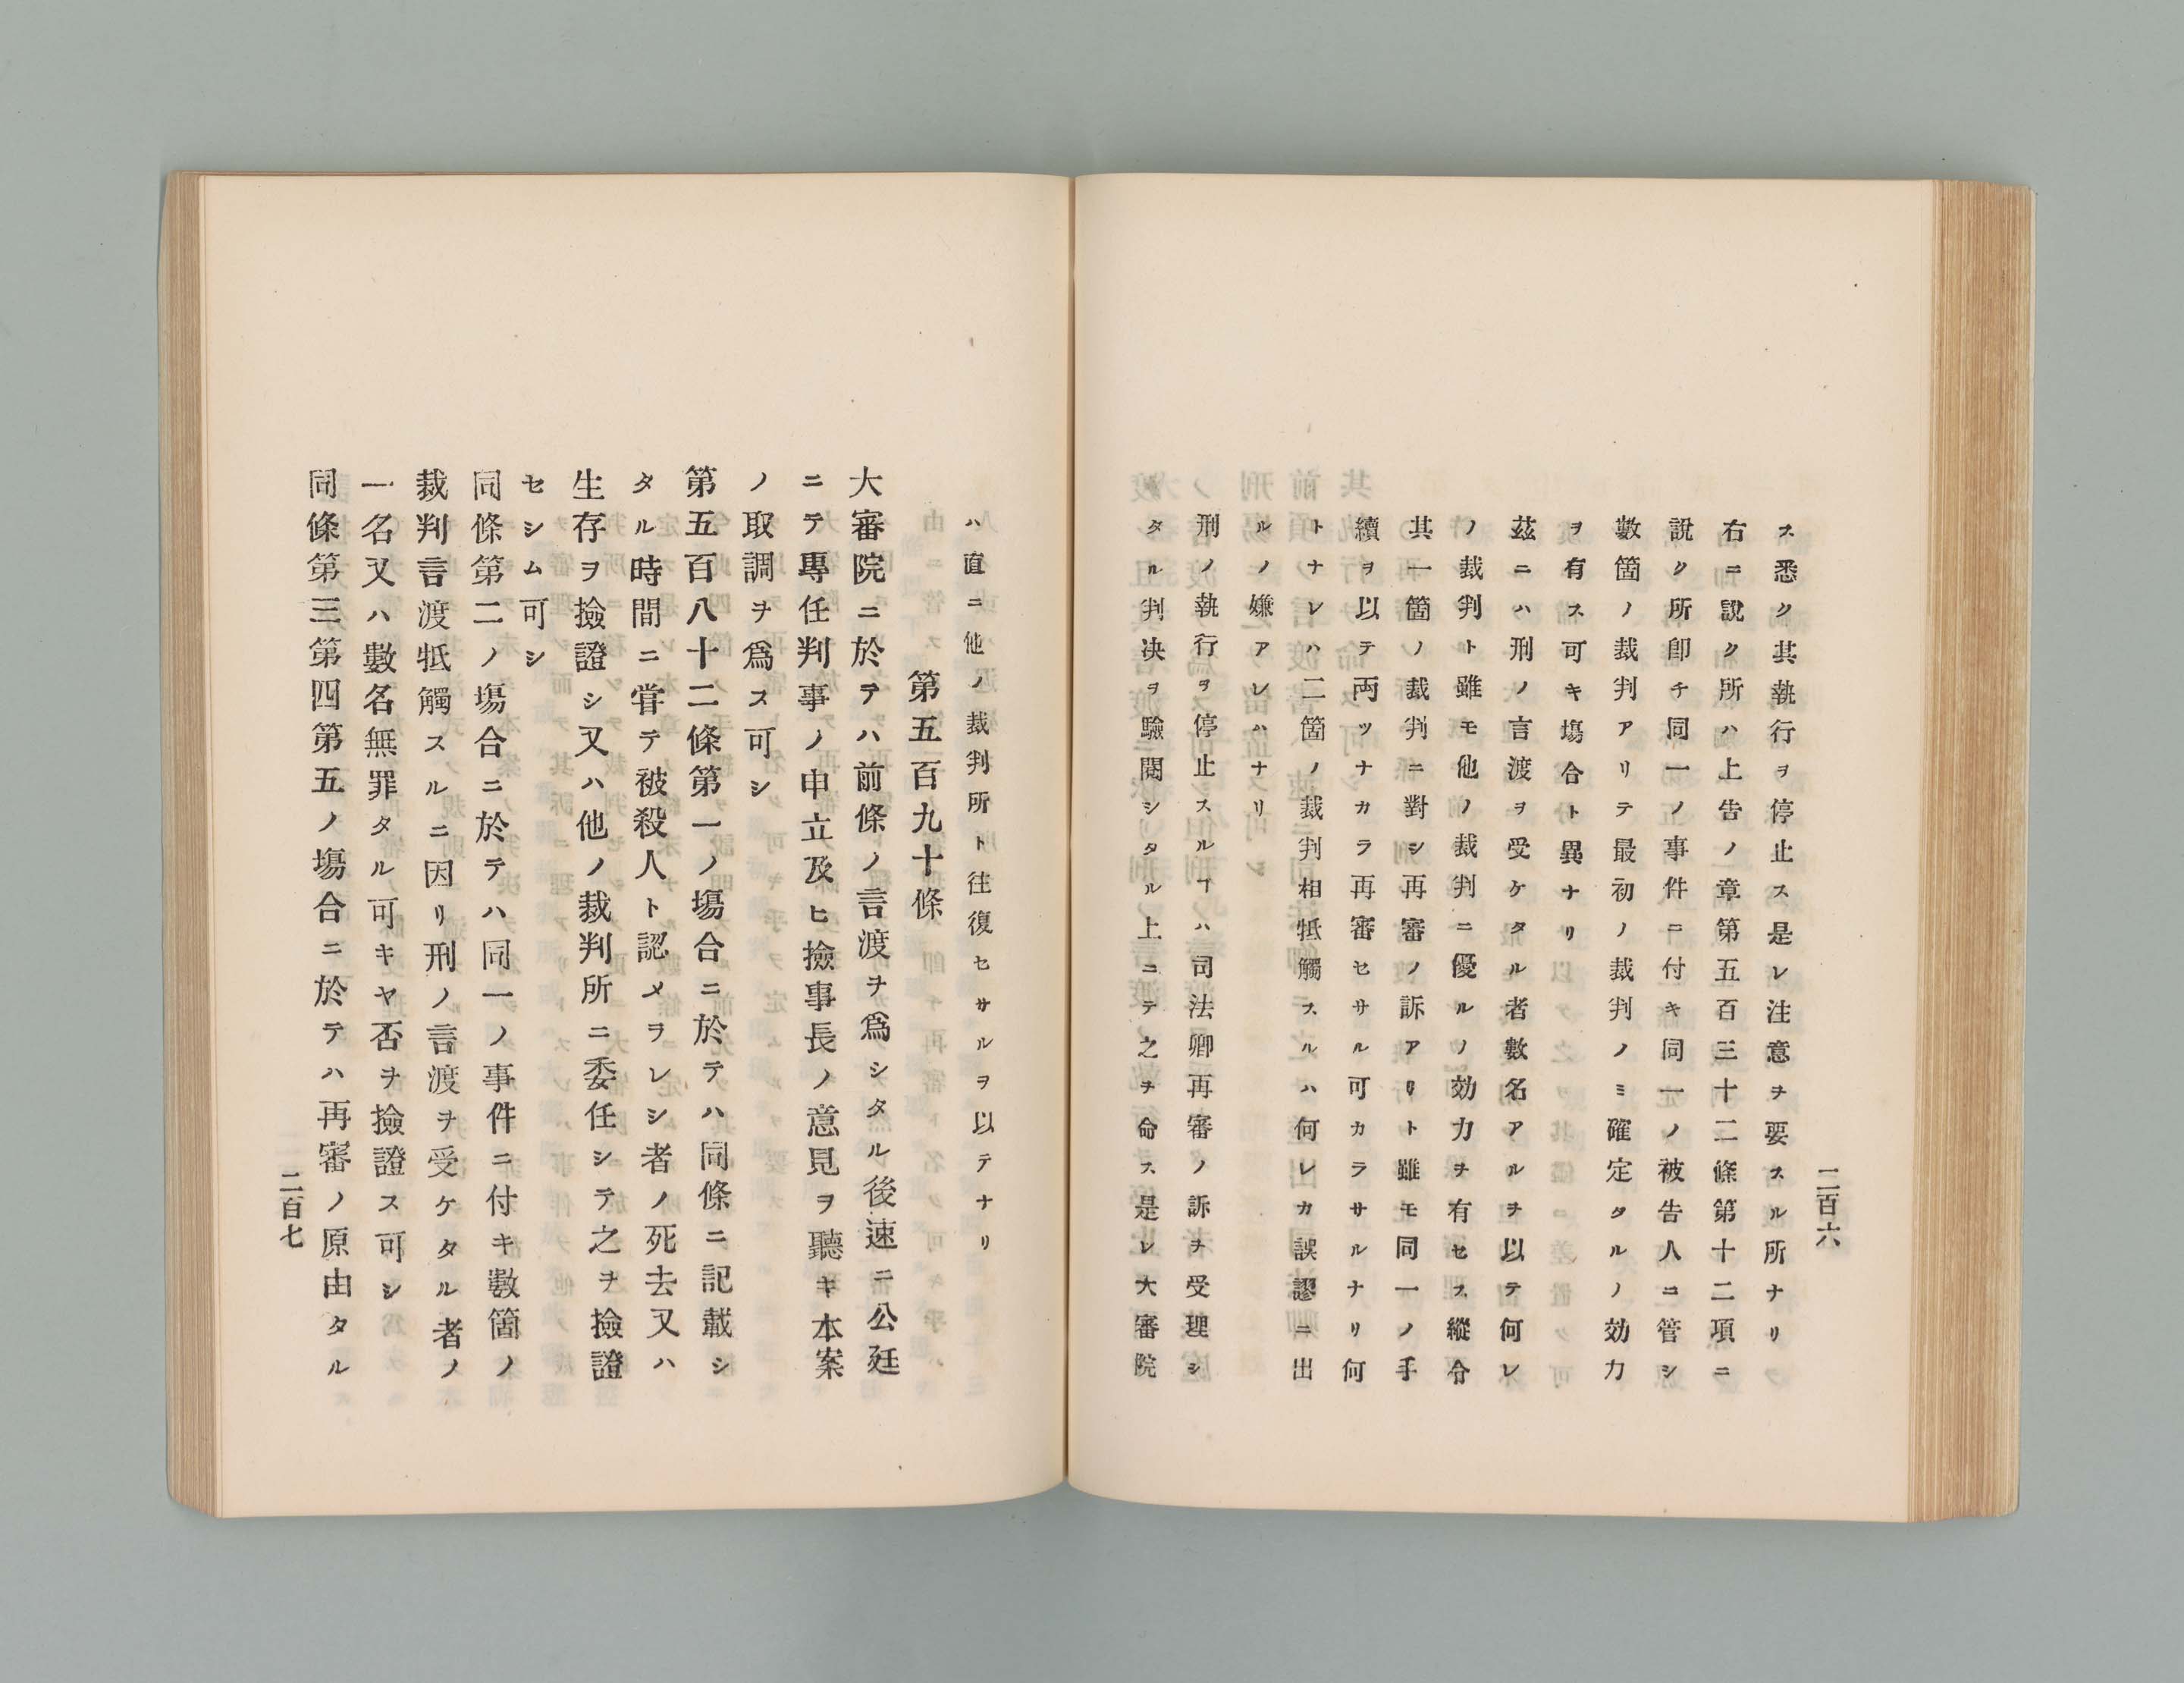 二百六
ス悉ク其執行ヲ停止ス是レ注意ヲ要スル所ナリ
右ニ説ク所ハ上告ノ章第五百三十二條第十二項ニ
説ク所卽チ同一ノ事件ニ付キ同一ノ被告人ニ管シ
數箇ノ裁判アリテ最初ノ裁判ノミ確定タルノ効力
ヲ有ス可キ塲合ト異ナリ
茲ニハ刑ノ言渡ヲ受ケタル者數名アルヲ以テ何レ
ノ裁判ト雖モ他ノ裁判ニ優ルノ効力ヲ有セス縱令
其一箇ノ裁判ニ對シ再審ノ訴アリト雖モ同一ノ手
續ヲ以テ両ツナカラ再審セサル可カラサルナリ何
トナレハ二箇ノ裁判相牴觸スルハ何レカ誤謬ニ出
ルノ嫌アレハナリ
刑ノ執行ヲ停止スルヿハ司法卿再審ノ訴ヲ受理シ
タル判决ヲ驗閱シタル上ニテ之ヲ命ス是レ大審院
ハ直ニ他ノ裁判所ト往復セサルヲ以テナリ
第五百九十條
大審院ニ於テハ前條ノ言渡ヲ爲シタル後速ニ公廷
ニテ專任判事ノ申立及ヒ撿事長ノ意見ヲ聽キ本案
ノ取調ヲ爲ス可シ
第五百八十二條第一ノ塲合ニ於テハ同條ニ記載シ
タル時間ニ甞テ被殺人ト認メラレシ者ノ死去又ハ
生存ヲ撿證シ又ハ他ノ裁判所ニ委任シテ之ヲ撿證
セシム可シ
同條第二ノ塲合ニ於テハ同一ノ事件ニ付キ數箇ノ
裁判言渡牴觸スルニ因リ刑ノ言渡ヲ受ケタル者ノ
一名又ハ數名無罪タル可キヤ否ヲ撿證ス可シ
同條第三第四第五ノ塲合ニ於テハ再審ノ原由タル
二百七